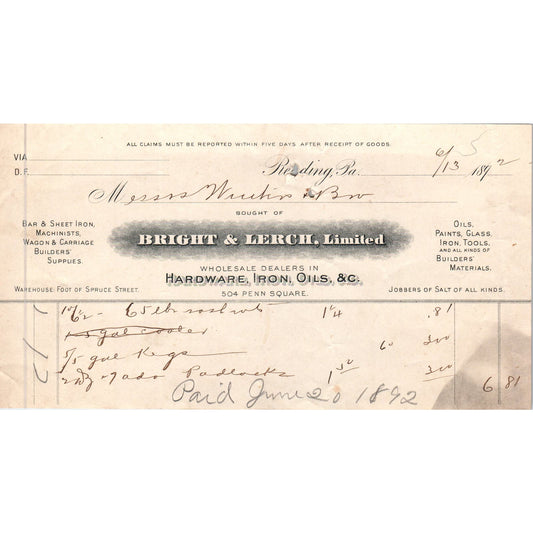 ALL CLAIMS MUST BE REPORTED WITHIN FIVE DAYS AFTER RECEIPT OF GOODS.
VIA
D.F.
Reading, Pa. 6/13 1892
Messrs & Bro
BOUGHT OF
BRIGHT & LERCH, Limited
WHOLESALE DEALERS IN
HARDWARE, IRON, OILS, &C.
504 PENN SQUARE.
BAR & SHEET IRON,
MACHINISTS,
WAGON & CARRIAGE
BUILDERS'
SUPPLIES.
WAREHOUSE FOOT OF SPRUCE STREET.
OILS,
PAINTS, GLASS,
IRON, TOOLS,
AND ALL KINDS OF
BUILDERS'
MATERIALS.
JOBBERS OF SALT OF ALL KINDS.
65 lbs sash wts 1 1/4 .81
5 gal cooler
5/5 gal Kegs 60 300
Padlocks 1 50 300 6 81
Paid June 20 1892